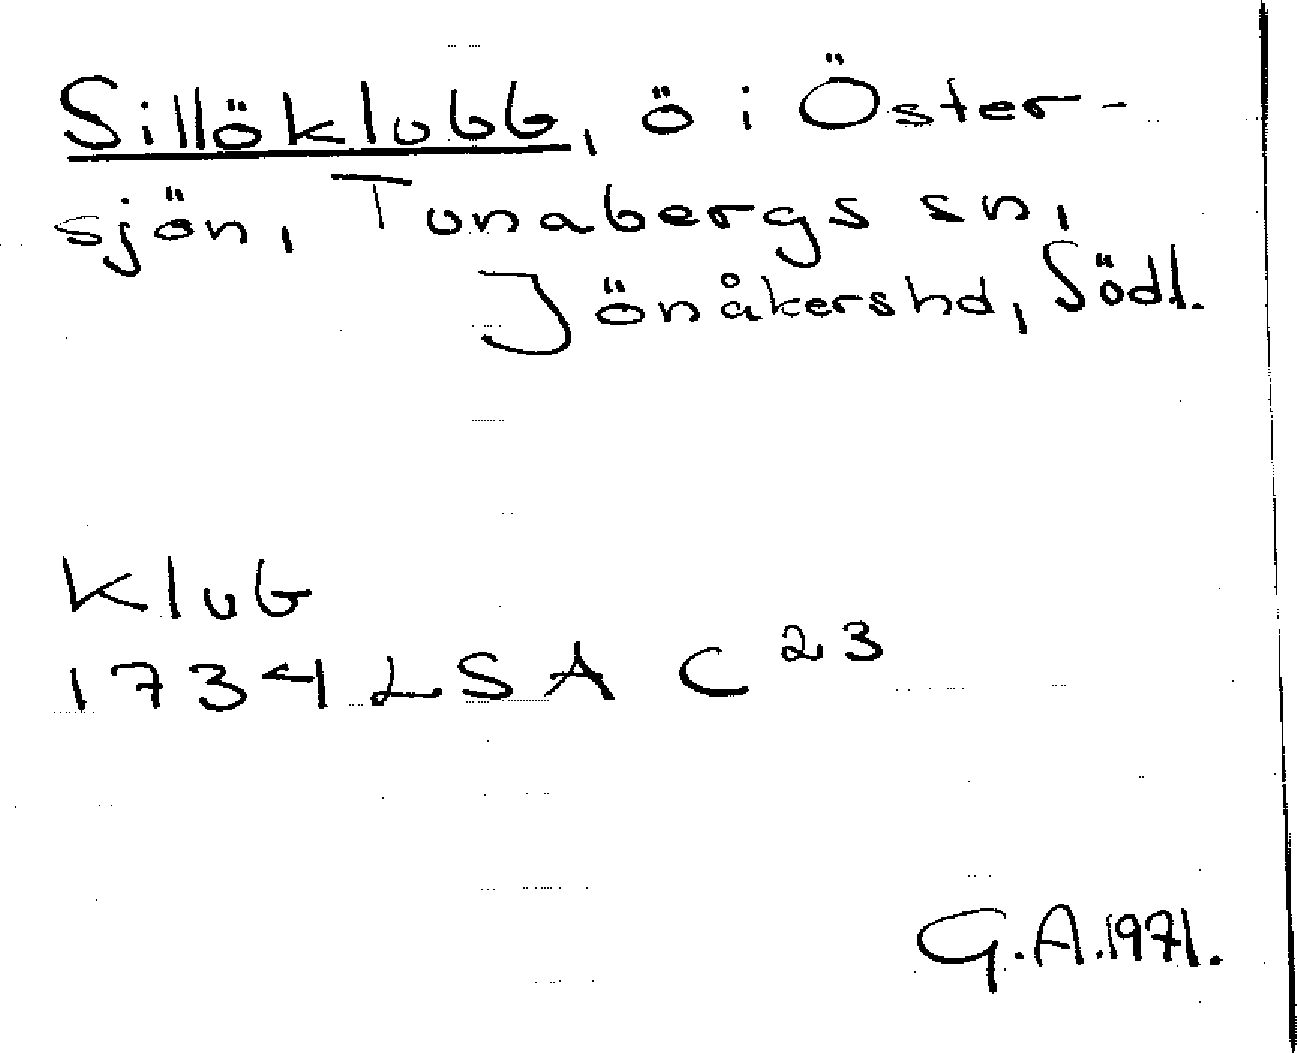 Sillöklubb, ö i Öster-
sjön, Tunabergs sn,
Jönåkershd, Södl.
Klub
1734 LSA C 23
G.A. 1971.